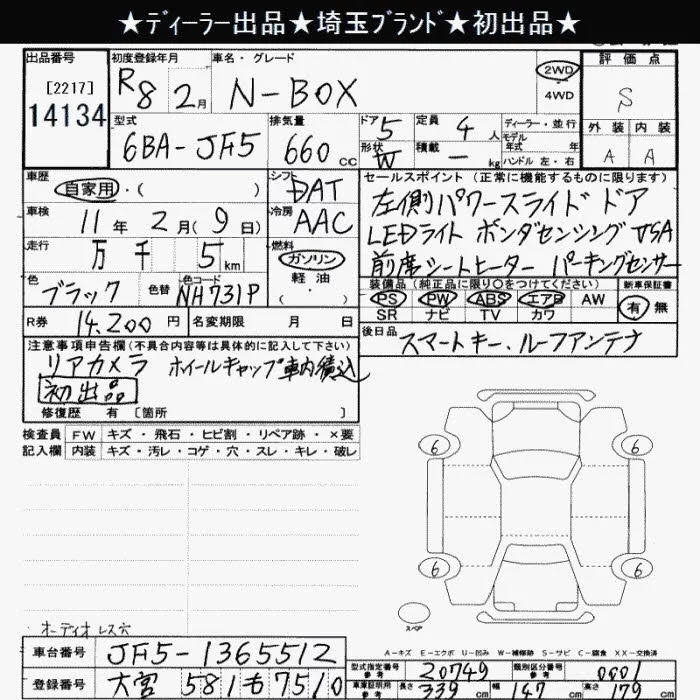 ★ディーラー出品★埼玉ブランド★初出品★
出品番号 初度登録年月 車名・グレード 評価点
[2217] R8年2月 N-BOX 2WD 4WD S
14134 型式 排気量 ドア 定員 ディーラー・並行 外装 内装
6BA-JF5 660cc 5 4人 モデル年式 年 A A
形状 W 積載 - kg ハンドル 左・右
車歴 シフト セールスポイント(正常に機能するものに限ります)
自家用・( ) DAT 左側パワースライドドア
車検 11年2月(9日) 冷房 AAC LEDライト ホンダセンシング VSA
走行 万千5km 燃料 ガソリン 軽油 ( ) 前席シートヒーター パーキングセンサー
色 ブラック 色替 色コード NH731P 装備品(純正品に限り○をつけてください) 新車保証書
PS PW ABS エアB AW 有・無
SR ナビ TV カワ
R券 14,200円 名変期限 月 日 後日品 スマートキー、ルーフアンテナ
注意事項申告欄(不具合内容等は具体的に記入して下さい)
リアカメラ ホイールキャップ車内積込
初出品
修復歴 有 [箇所 ]
検査員 FW キズ・飛石・ヒビ割・リペア跡・×要
記入欄 内装 キズ・汚レ・コゲ・穴・スレ・キレ・破レ
6 6
6 6
スペア
オーディオレス穴
A-キズ E-エクボ U-凹み W-補修跡 S-サビ C-腐食 XX-交換済
車台番号 JF5-1365512 型式指定番号 参考 20749 類別区分番号 参考 0001
登録番号 大宮 581 も 7510 車庫証明用 参考 長さ 339cm 幅 147cm 高さ 179cm